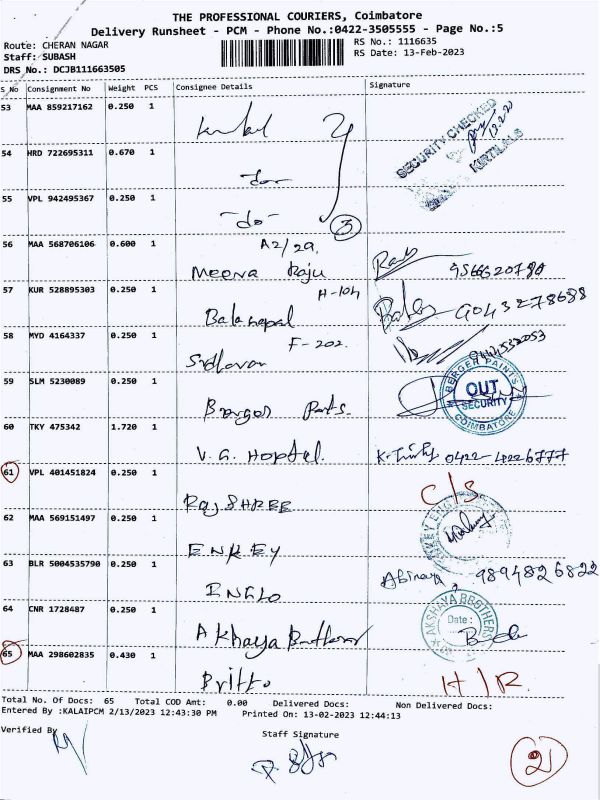 THE PROFESSIONAL COURIERS, Coimbatore
Delivery Runsheet - PCM - Phone No.:0422-3505555 - Page No.:5
Route: CHERAN NAGAR
RS No.: 1116635
Staff: SUBASH
RS Date: 13-Feb-2023
DRS No.: DCJB111663505
S No Consignment No Weight PCS Consignee Details Signature
53 MAA 859217162 0.250 1
SECURITY CHECKED
KIRTILALS
54 HRD 722695311 0.670 1
-do-
55 VPL 942495367 0.250 1
-do- 3
56 MAA 568706106 0.600 1 A2/29.
Meena Raju
57 KUR 528895303 0.250 1 H-104
Balagopal 9043278688
58 MYD 4164337 0.250 1 F-202.
59 SLM 5230089 0.250 1
BERGER PAINTS
OUT
SECURITY
COIMBATORE
60 TKY 475342 1.720 1
V.G. Hoptal. 0422-4226777
61 VPL 401451824 0.250 1
RajSHREE C/S
62 MAA 569151497 0.250 1
ENKEY
63 BLR 5004535790 0.250 1
INGLO Abinaya, 9894826822
64 CNR 1728487 0.250 1
Akhaya Brothers
AKSHAYA BROTHERS
Date :
65 MAA 298602835 0.430 1
Britto H/R.
Total No. Of Docs: 65 Total COD Amt: 0.00 Delivered Docs: Non Delivered Docs:
Entered By :KALAIPCM 2/13/2023 12:43:30 PM Printed On: 13-02-2023 12:44:13
Verified By
Staff Signature
2